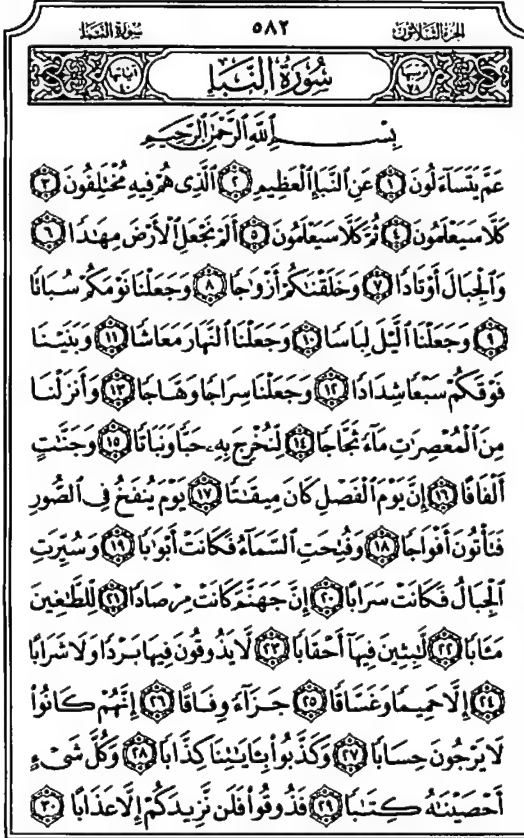 الجزء الثلاثون ٥٨٢ سورة النبإ
ترتيبها ٧٨ سُورَةُ النَّبَإِ آياتها ٤٠
بِسْمِ اللَّهِ الرَّحْمَٰنِ الرَّحِيمِ
عَمَّ يَتَسَآءَلُونَ ١ عَنِ ٱلنَّبَإِ ٱلْعَظِيمِ ٢ ٱلَّذِى هُمْ فِيهِ مُخْتَلِفُونَ ٣
كَلَّا سَيَعْلَمُونَ ٤ ثُمَّ كَلَّا سَيَعْلَمُونَ ٥ أَلَمْ نَجْعَلِ ٱلْأَرْضَ مِهَٰدًا ٦
وَٱلْجِبَالَ أَوْتَادًا ٧ وَخَلَقْنَٰكُمْ أَزْوَٰجًا ٨ وَجَعَلْنَا نَوْمَكُمْ سُبَاتًا
٩ وَجَعَلْنَا ٱلَّيْلَ لِبَاسًا ١٠ وَجَعَلْنَا ٱلنَّهَارَ مَعَاشًا ١١ وَبَنَيْنَا
فَوْقَكُمْ سَبْعًا شِدَادًا ١٢ وَجَعَلْنَا سِرَاجًا وَهَّاجًا ١٣ وَأَنزَلْنَا
مِنَ ٱلْمُعْصِرَٰتِ مَآءً ثَجَّاجًا ١٤ لِّنُخْرِجَ بِهِۦ حَبًّا وَنَبَاتًا ١٥ وَجَنَّٰتٍ
أَلْفَافًا ١٦ إِنَّ يَوْمَ ٱلْفَصْلِ كَانَ مِيقَٰتًا ١٧ يَوْمَ يُنفَخُ فِى ٱلصُّورِ
فَتَأْتُونَ أَفْوَاجًا ١٨ وَفُتِحَتِ ٱلسَّمَآءُ فَكَانَتْ أَبْوَٰبًا ١٩ وَسُيِّرَتِ
ٱلْجِبَالُ فَكَانَتْ سَرَابًا ٢٠ إِنَّ جَهَنَّمَ كَانَتْ مِرْصَادًا ٢١ لِّلطَّٰغِينَ
مَـَٔابًا ٢٢ لَّٰبِثِينَ فِيهَآ أَحْقَابًا ٢٣ لَّا يَذُوقُونَ فِيهَا بَرْدًا وَلَا شَرَابًا
٢٤ إِلَّا حَمِيمًا وَغَسَّاقًا ٢٥ جَزَآءً وِفَاقًا ٢٦ إِنَّهُمْ كَانُوا۟
لَا يَرْجُونَ حِسَابًا ٢٧ وَكَذَّبُوا۟ بِـَٔايَٰتِنَا كِذَّابًا ٢٨ وَكُلَّ شَىْءٍ
أَحْصَيْنَٰهُ كِتَٰبًا ٢٩ فَذُوقُوا۟ فَلَن نَّزِيدَكُمْ إِلَّا عَذَابًا ٣٠